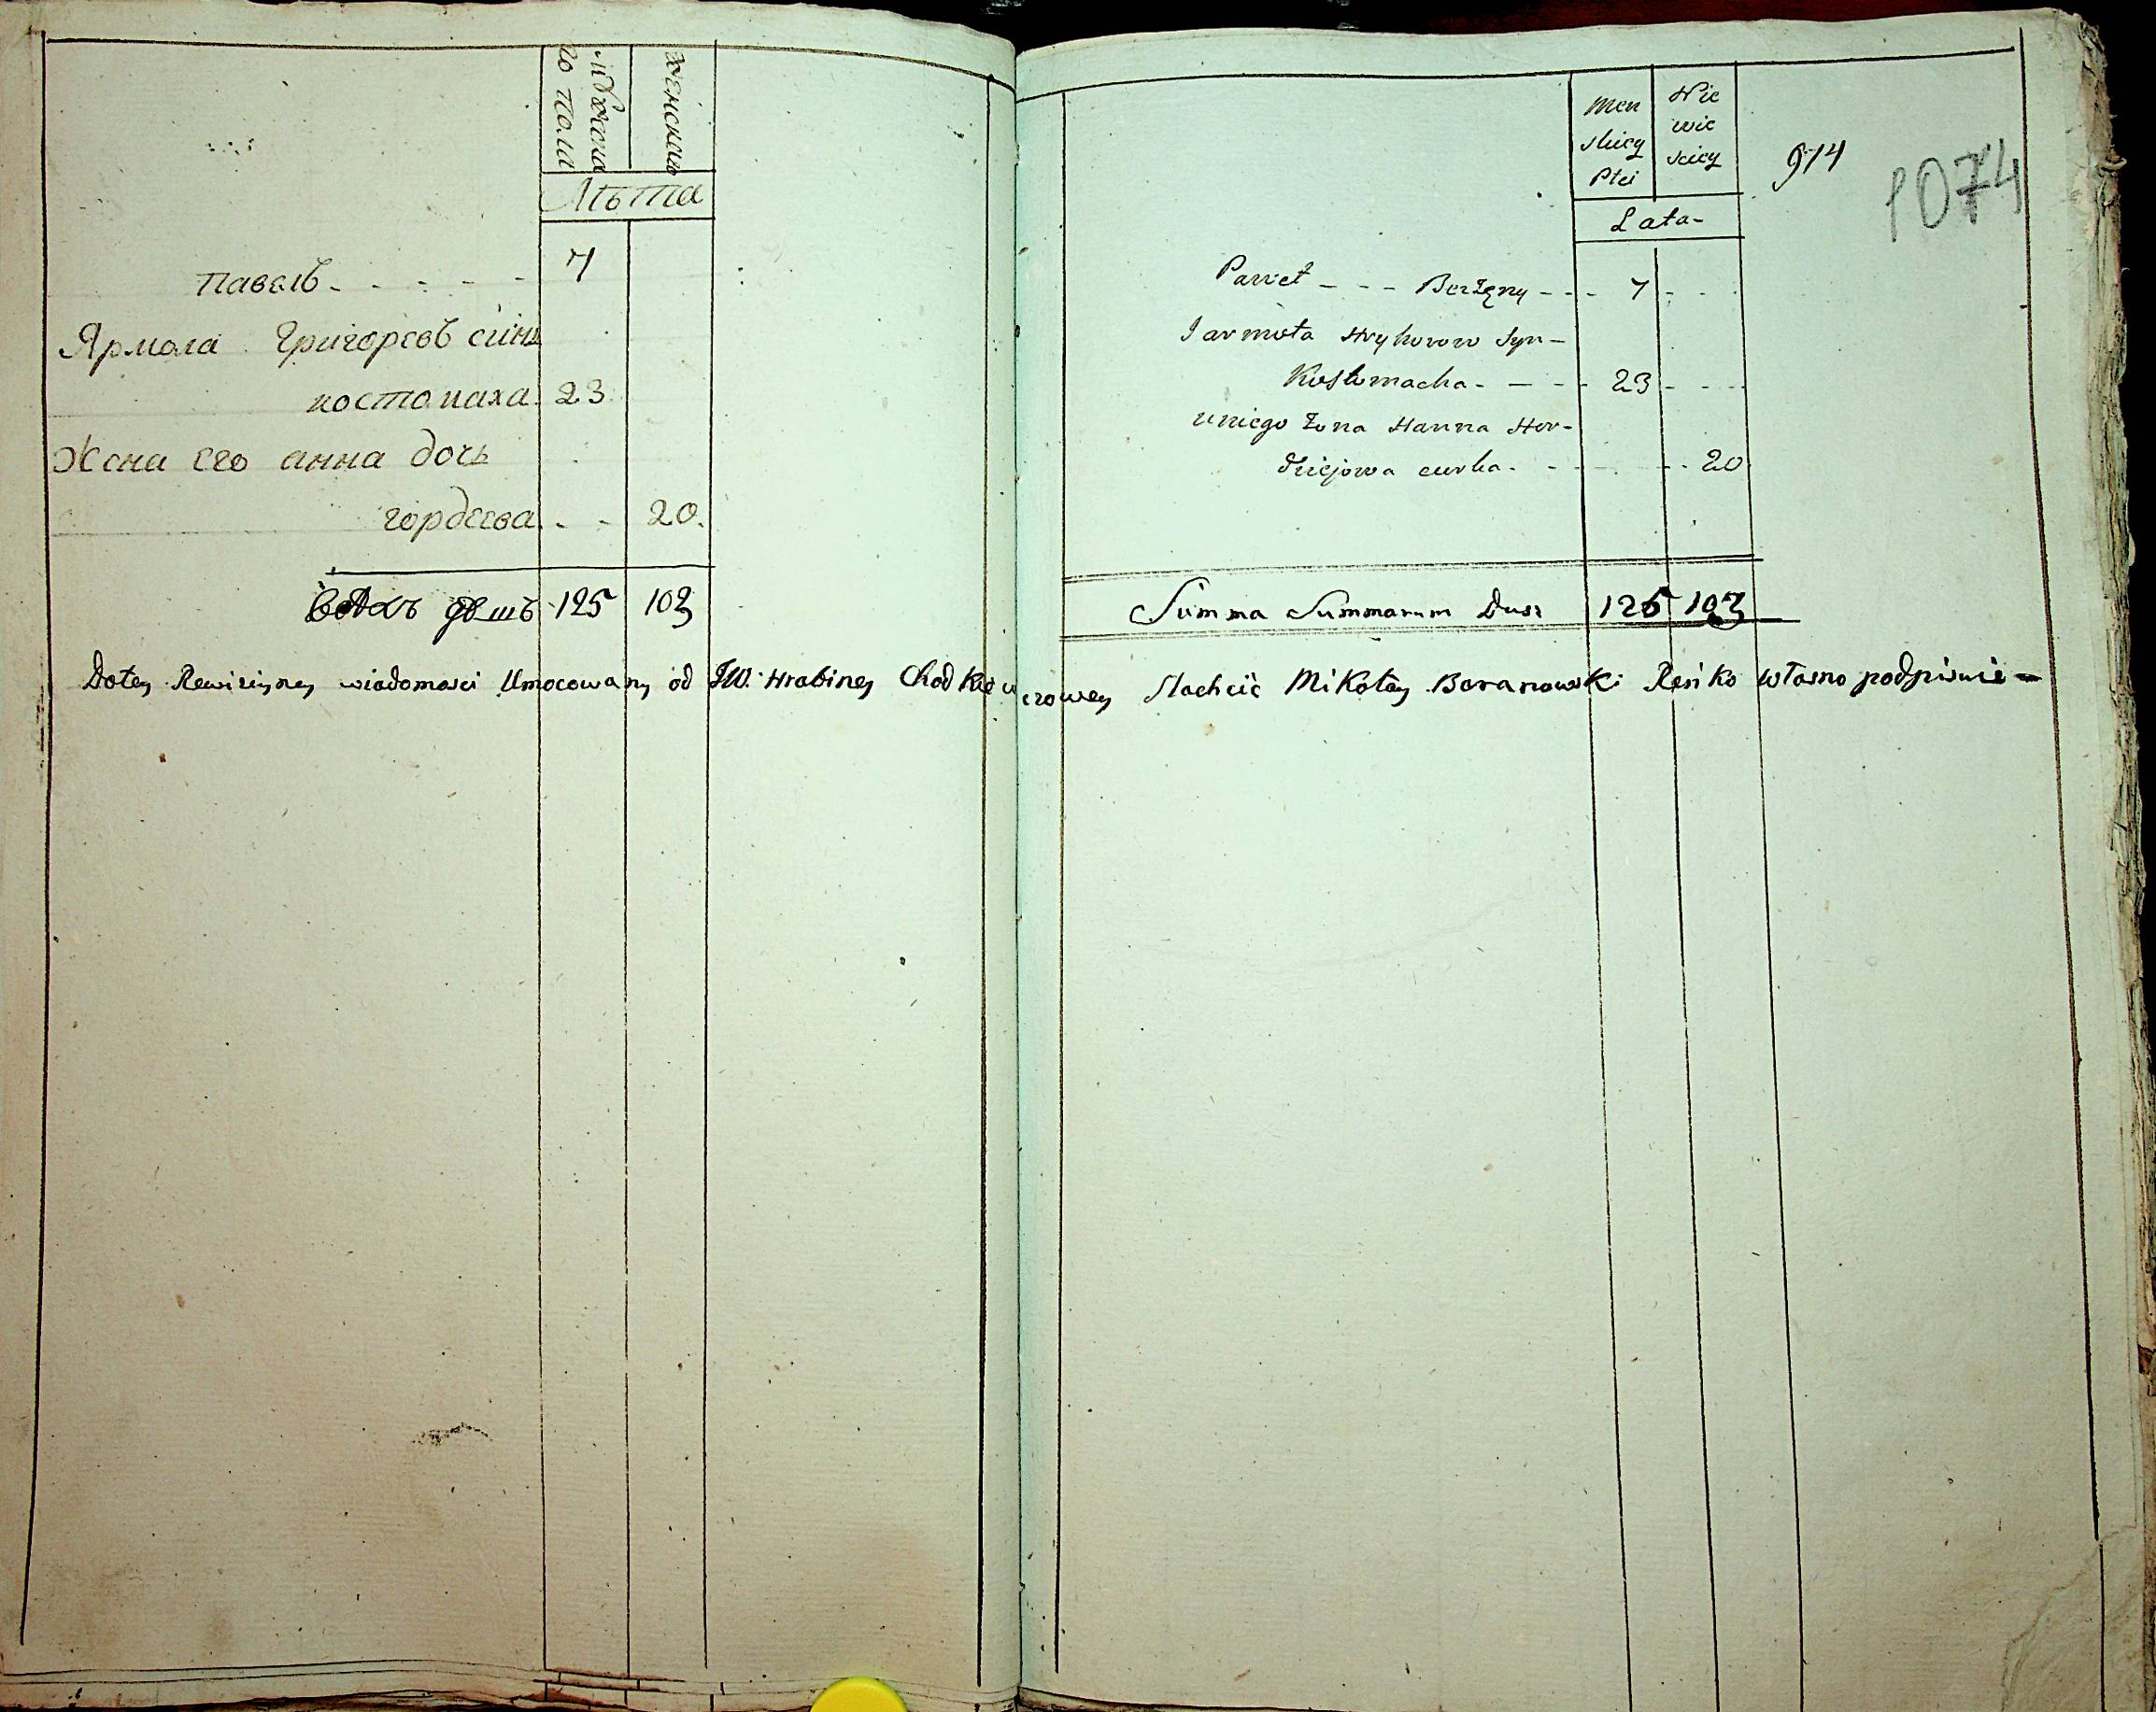 мужска
го пола
женска
Лѣта
павелъ - - - - - 7
Ярмола Григорєвъ синъ
костомаха 23
Жена єго анна дочь
гордеева - - 20.
душъ 125 103
Men
skiey
Płci
Nie
wie
sciey
974
1074
Lata-
Paweł - - - Berżęny - - - 7 - - -
Jarmoła Hryhorow Syn -
Kostomacha - - - - 23 - - -
uniego żona Hanna Hor-
dziejowa curka - - - - - 20
Summa Summarum Dusz 125 103
Dotey Rewizyiney wiadomosci Umocowany od JW. Hrabiney Chodkiewiczowey Slachcic Mikołay Baranowski Renko własno podpisuie -